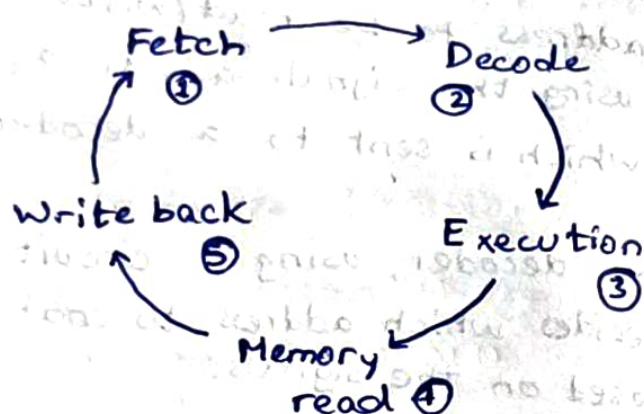 Fetch
①
Decode
②
Execution
③
Memory
read ④
Write back
⑤